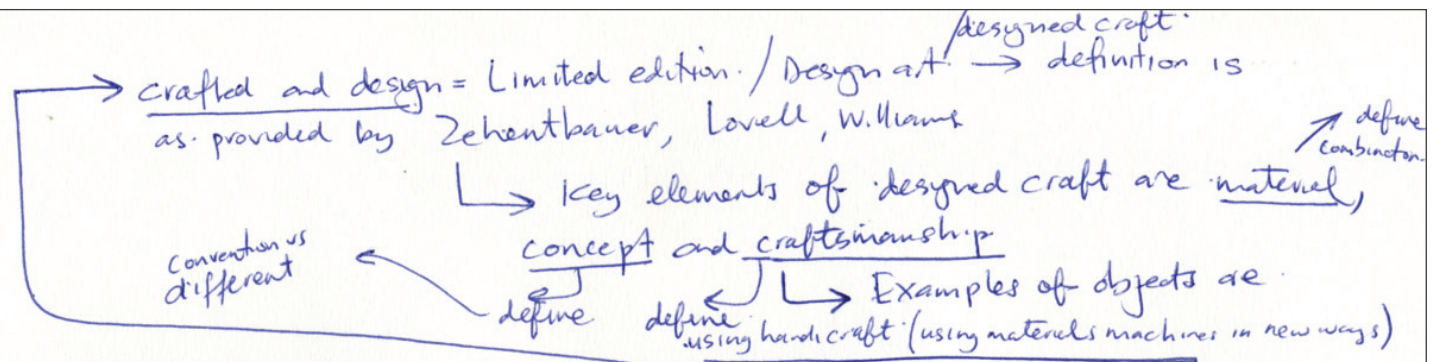 /designed craft.
crafted and design = Limited edition. / Design art. → definition is
as. provided by Zehentbauer, Lovell, Williams
define
combination.
→ Key elements of designed craft are material,
concept and craftsmanship
convention vs
different
→ Examples of objects are
define define using handicraft (using materials machines in new ways)